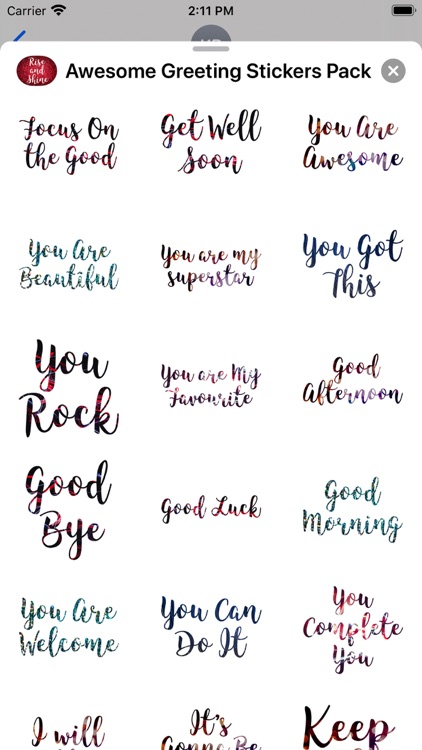 Carrier 2:11 PM
Rise
and
Shine
Awesome Greeting Stickers Pack
Focus On
the Good
Get Well
Soon
You Are
Awesome
You Are
Beautiful
You are my
superstar
You Got
This
You
Rock
You are My
Favourite
Good
Afternoon
Good
Bye
Good Luck
Good
Morning
You Are
Welcome
You Can
Do It
You
Complete
You
I will
It's
Gonna Be
Keep